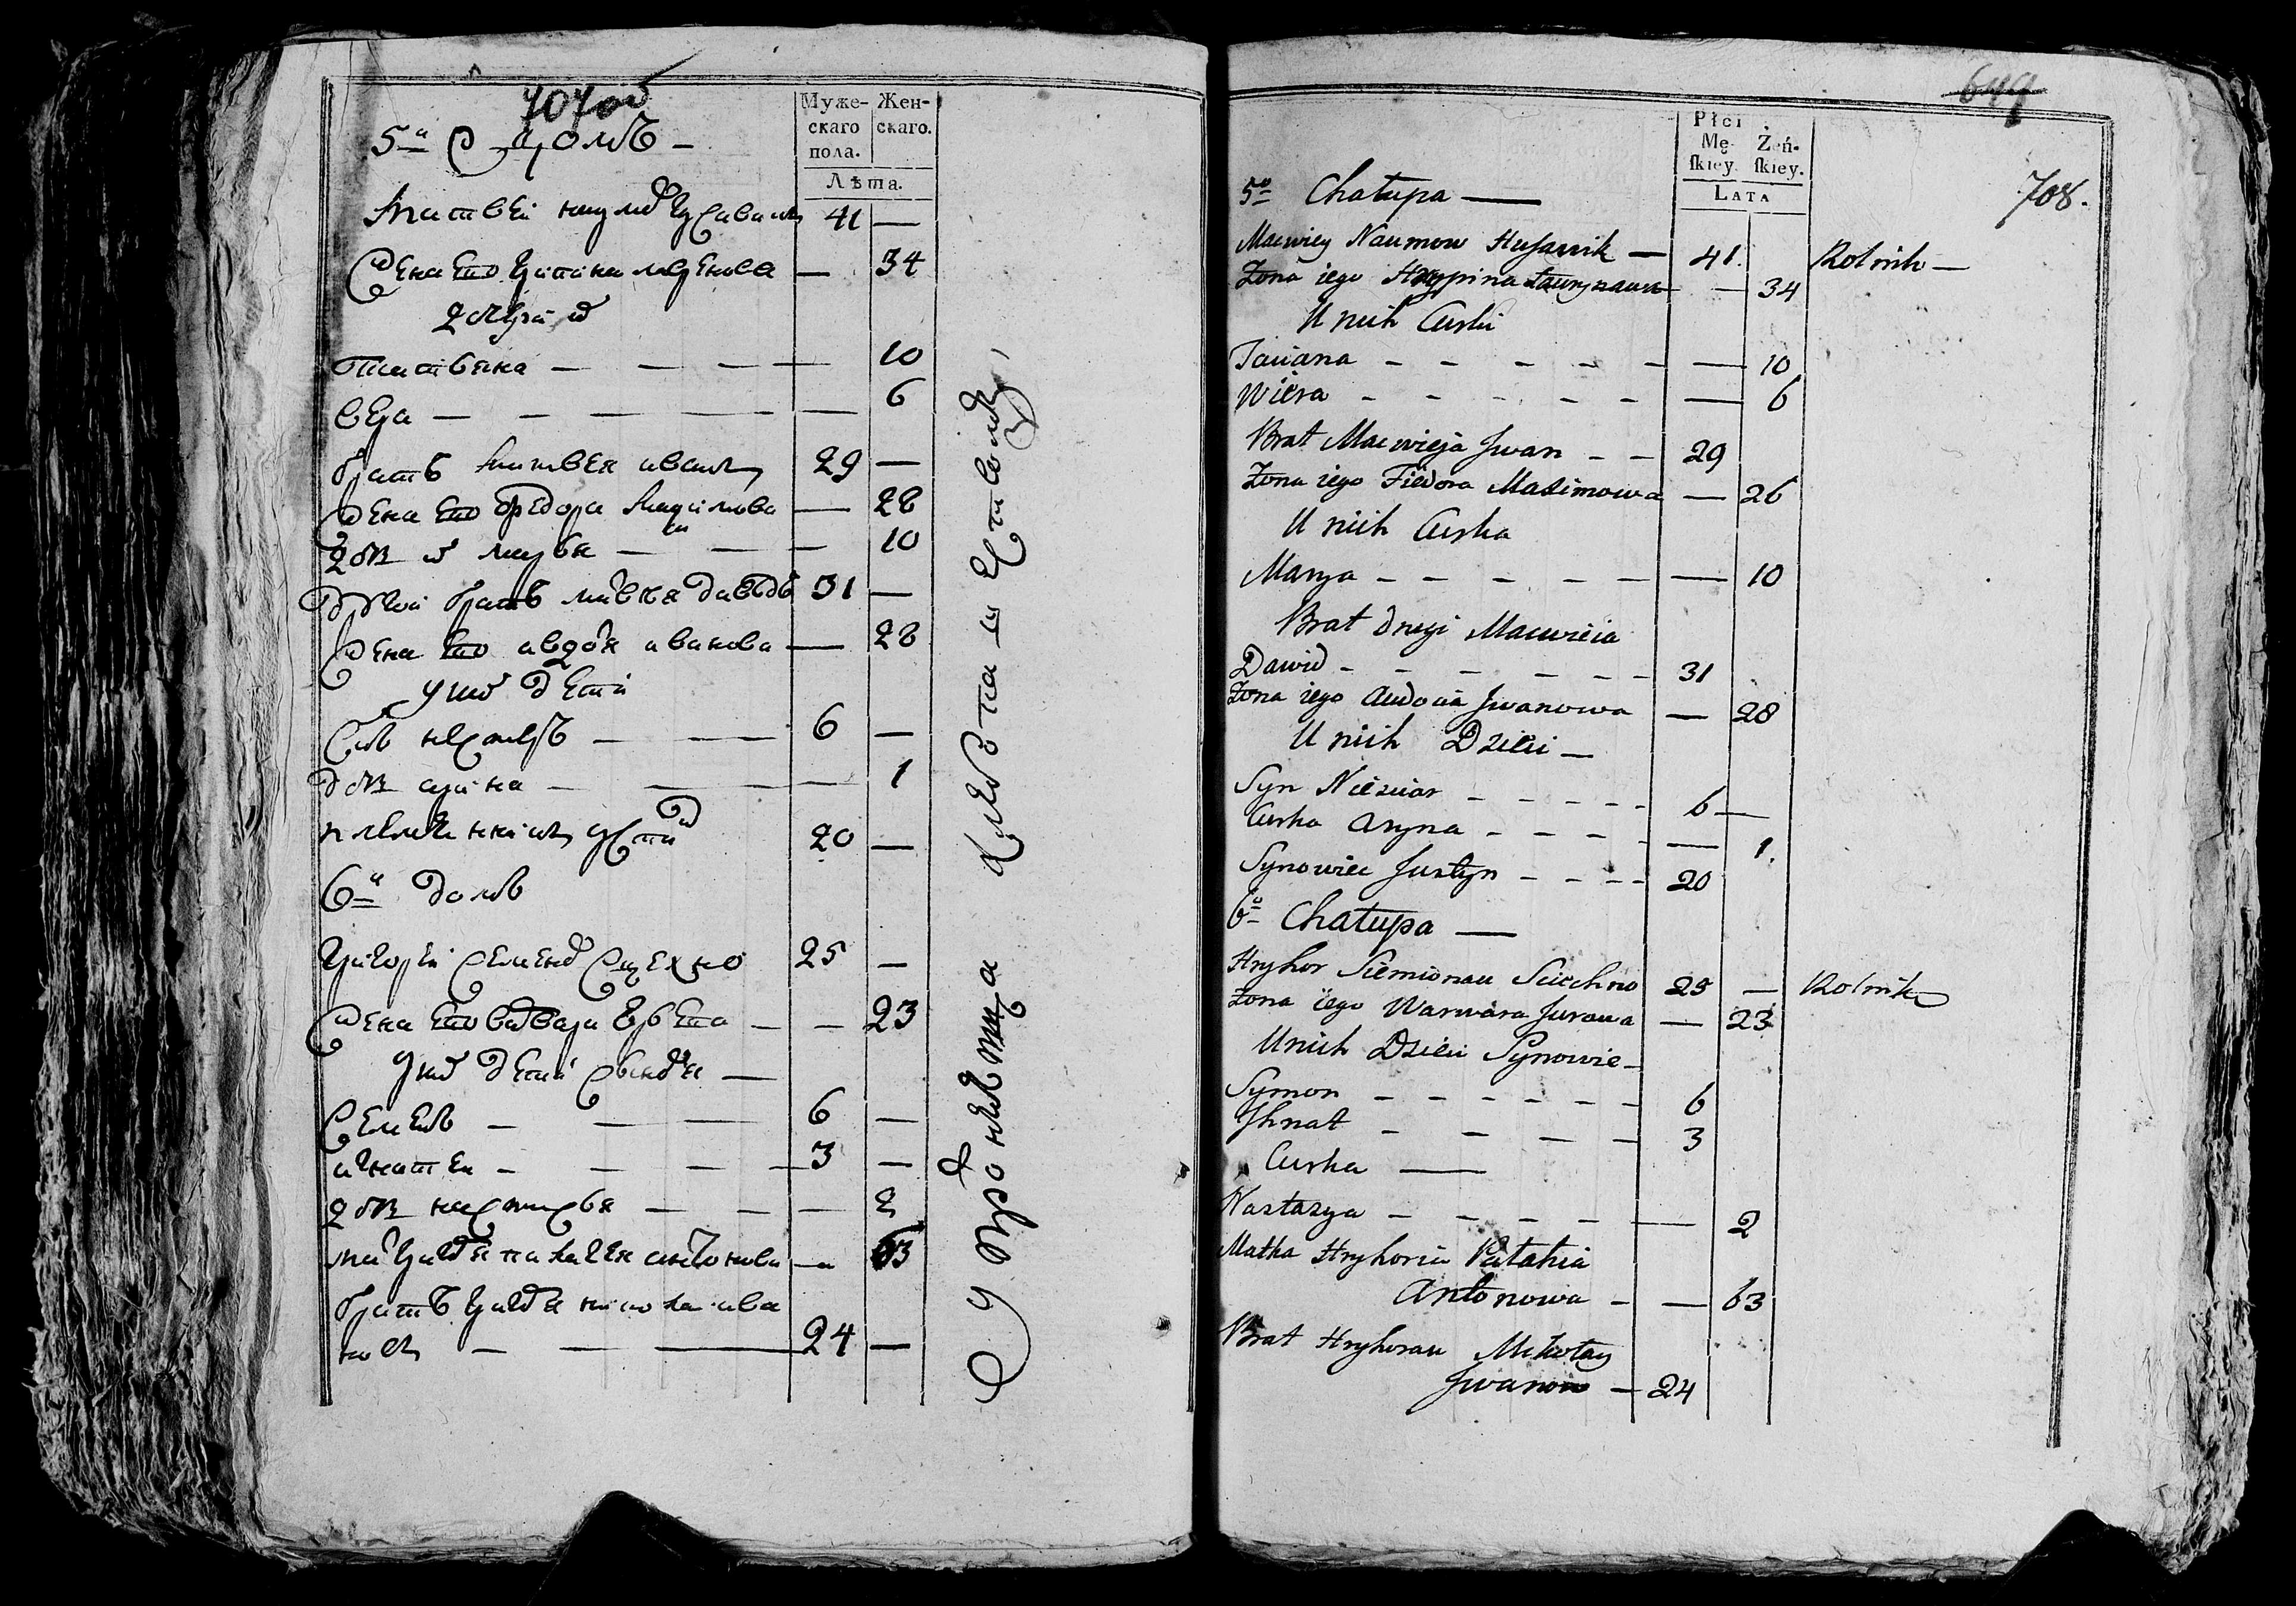 707 об
Муже-
скаго
пола.
Жен-
скаго.
Лѣта.
5й домъ —
Матвей Наумов Гусавик 41 —
Жена его Грипина лавренова — 34
дочери их
татьяна — — — 10
вера — — — 6
братъ матвея иван 29 —
Жена его Федора Максимова — 28
дочь их марья — — 10
Другой братъ матвея давыдъ 31 —
Жена его авдотья иванова — 28
у них дети
Сын нестеръ — — 6 —
дочь арина — — 1
племенник устин 20 —
6й домъ
Григорей Семенов Сцехно 25 —
Жена его варвара — — 23
у них дети сыновья —
Семен — — 6 —
игнатей — — — 3 —
дочь настасья — — — 2
мать григорья палагея антонова — 63
братъ григорья николай ива
нов — — — 24 —
644
708.
Płci
Mę-
ſkiey.
Żeń-
ſkiey.
LATA
5a Chałupa —
Macwiey Naumow Husawik — 41. Rolnik —
Żona iego Hrypina Ławrynawa — 34
U nich Curki
Taciana — — — — — — 10
Wiera — — — — — — 6
Brat Macwieja Jwan — — 29
Żona iego Fiedora Maximowa — 26
U nich Curka
Marya — — — — — — 10
Brat drugi Macwieia
Dawid — — — — — — 31
Żona iego Audocia Jwanowa — 28
U nich Dzieci —
Syn Niesciar — — — — — 6 —
Curka Aryna — — — — — 1.
Synowiec Justyn — — — — 20
6a Chałupa —
Hryhor Siemionau Sciechno 25 — Rolnik
Żona iego Warwara Jurowa — 23
U nich Dzieci Synowie —
Symon — — — — — — 6
Jhnat — — — — 3
Curka —
Nastazya — — — — — 2
Matka Hryhoria Pałahia
Antonowa — — 63
Brat Hryhorau Mikołay
Jwanow — 24